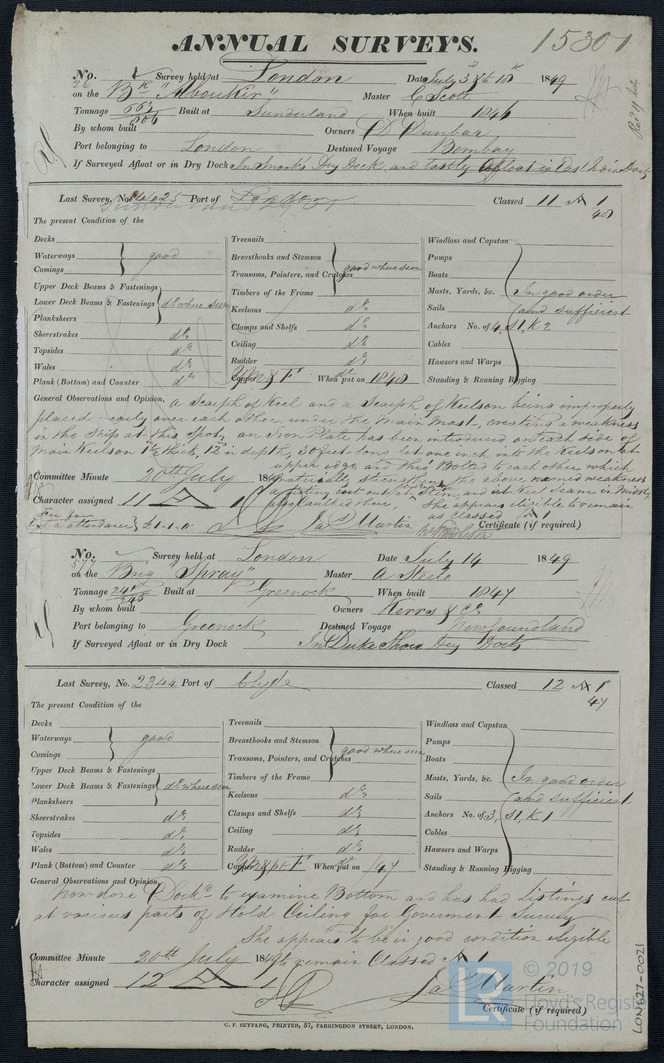 ANNUAL SURVEYS. 15301
No. 26 Survey held at London Date July 3 & 18 1849
on the Bk "Aboukir" Master C Scott
Tonnage 662 806 Built at Sunderland When built 1846
By whom built Owners D Dunbar
Port belonging to London Destined Voyage Bombay
If Surveyed Afloat or in Dry Dock In Dry Dock, and lastly afloat in East India Dock
Last Survey, No. Port of London Classed 11 A 1
48
The present Condition of the
Decks
Waterways
Comings
good
Upper Deck Beams & Fastenings
Lower Deck Beams & Fastenings
Planksheers
do where seen
Sheerstrakes do
Topsides do
Wales do
Plank (Bottom) and Counter do
Treenails
Breasthooks and Stemson
Transoms, Pointers, and Crutches
Timbers of the Frame
good where seen
Keelsons do
Clamps and Shelfs do
Ceiling do
Rudder do
Copper When put on 1848
Windlass and Capstan
Pumps
Boats
Masts, Yards, &c.
Sails
Anchors No. of 4, S1, K2
Cables
Hawsers and Warps
Standing & Running Rigging
In good order
and sufficient
General Observations and Opinion, a Scarph of Keel and a Scarph of Keelson being improperly
placed nearly over each other, under the Main Mast, creating a weakness
in the Ship at this Spot, an Iron Plate has been introduced on each side of
Main Keelson thick, 12 in depth, 30 feet long let one inch into the Keelson at
upper edge and Bolted to each other which
materially strengthens the above named weakness
Committee Minute 20th July 1849
Character assigned 11 A 1
She appears eligible to remain
as Classed A 1
Fee for
attendance £1.1.0 Jas Martin
Certificate (if required)
No. 577 Survey held at London Date July 14 1849
on the Brig "Spray" Master A Steele
Tonnage 241 245 Built at Greenock When built 1847
By whom built Owners Kerrs & Co
Port belonging to Greenock Destined Voyage Newfoundland
If Surveyed Afloat or in Dry Dock In Duke Shore Dry Dock
Last Survey, No. 2344 Port of Clyde Classed 12 A 1
47
The present Condition of the
Decks
Waterways
Comings
good
Upper Deck Beams & Fastenings
Lower Deck Beams & Fastenings
Planksheers
do where seen
Sheerstrakes do
Topsides do
Wales do
Plank (Bottom) and Counter do
Treenails
Breasthooks and Stemson
Transoms, Pointers, and Crutches
Timbers of the Frame
good where seen
Keelsons do
Clamps and Shelfs do
Ceiling do
Rudder do
Copper When put on /47
Windlass and Capstan
Pumps
Boats
Masts, Yards, &c.
Sails
Anchors No. of 3, S1, K1
Cables
Hawsers and Warps
Standing & Running Rigging
In good order
and sufficient
General Observations and Opinion,
Now done Dockd to examine Bottom and has had listings cut
at various parts of Hold Ceiling for Government Survey
She appears to be in good condition eligible
Committee Minute 20th July 1849 to remain Classed A 1
Character assigned 12 A 1
Jas Martin
Certificate (if required)
C. F. SEYFANG, PRINTER, 57, FARRINGDON STREET, LONDON.
© 2019
Lloyd's Register
Foundation
LON627-0021